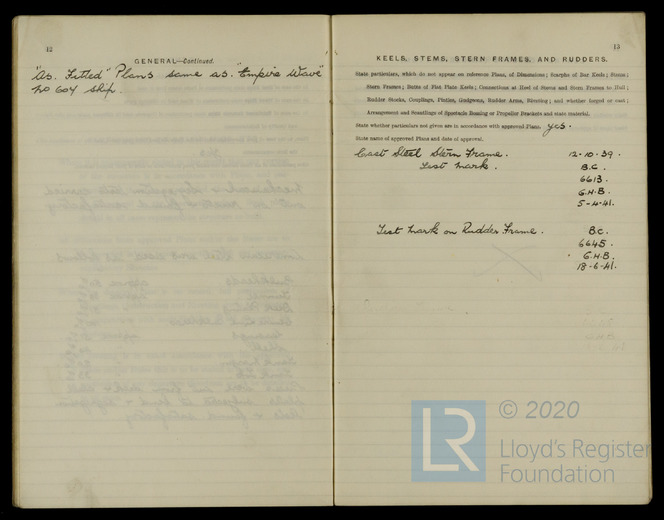 12
GENERAL—Continued.
"As Fitted" Plans same as "Empire Wave"
No 604 ship.
13
KEELS, STEMS, STERN FRAMES, AND RUDDERS.
State particulars, which do not appear on reference Plans, of Dimensions; Scarphs of Bar Keels; Stems;
Stern Frames; Butts of Flat Plate Keels; Connections at Heel of Stems and Stern Frames to Hull;
Rudder Stocks, Couplings, Pintles, Gudgeons, Rudder Arms, Riveting; and whether forged or cast;
Arrangement and Scantlings of Spectacle Bossing or Propeller Brackets and state material.
State whether particulars not given are in accordance with approved Plans. Yes.
State name of approved Plans and date of approval.
Cast Steel Stern Frame. 12-10-39.
Test Mark. B.C.
6613.
G.H.B.
5-4-41.
Test Mark on Rudder Frame. B.C.
6645.
G.H.B.
18-6-41.
LR
© 2020
Lloyd's Register
Foundation